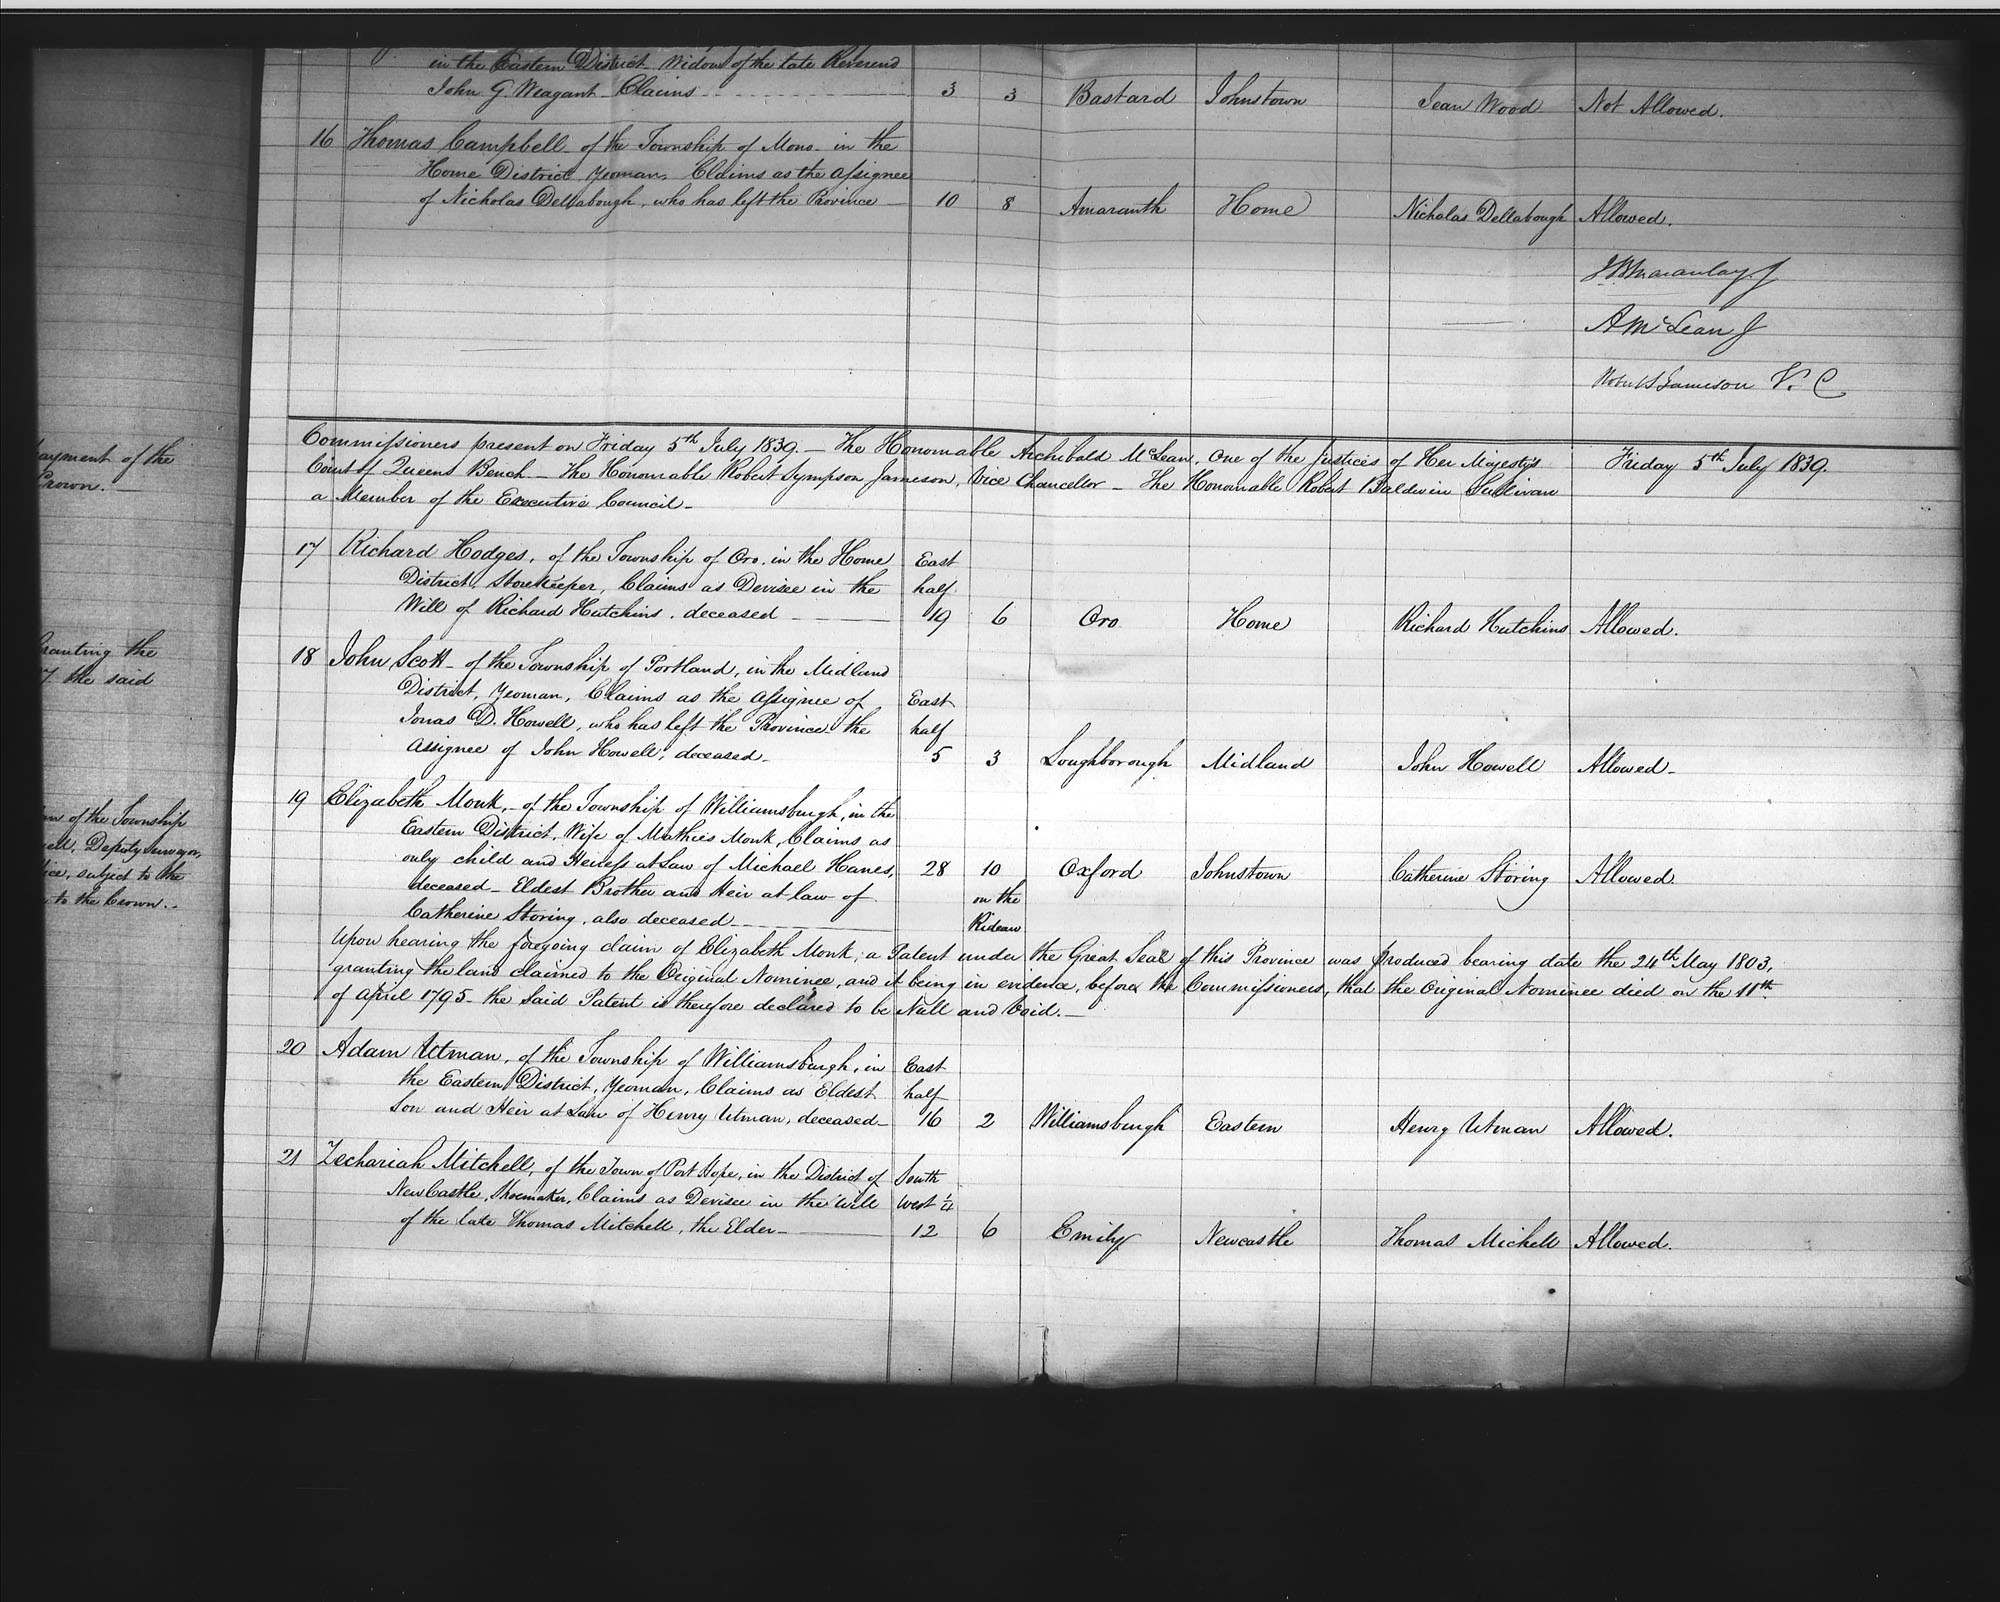 in the Eastern District Widow of the late Reverend
John G. Weagant Claims 3 3 Bastard Johnstown Jean Wood Not Allowed.
16 Thomas Campbell of the Township of Mono in the
Home District, Yeoman, Claims as the Assignee
of Nicholas Dellabough, who has left the Province 10 8 Amaranth Home Nicholas Dellabough Allowed.
J B Macaulay. J
A McLean J
Robert S Jameson V. C
Commissioners present on Friday 5th July 1839. — The Honorable Archibald McLean, One of the Justices of Her Majesty's Friday 5th July 1839.
Court of Queens Bench — The Honorable Robert Sympson Jameson, Vice Chancellor — The Honorable Robert Baldwin Sullivan
a Member of the Executive Council —
17 Richard Hodges, of the Township of Oro, in the Home East
District, Storekeeper, Claims as Devisee in the half
Will of Richard Hutchins, deceased 19 6 Oro Home Richard Hutchins Allowed.
18 John Scott — of the Township of Portland, in the Midland
District, Yeoman, Claims as the Assignee of East
Jonas D. Howell, who has left the Province the half
Assignee of John Howell, deceased — 5 3 Loughborough Midland John Howell Allowed —
19 Elizabeth Monk, — of the Township of Williamsburgh, in the
Eastern District, Wife of Mathies Monk, Claims as
only child and Heiress at Law of Michael Hanes, 28 10 Oxford Johnstown Catherine Storing Allowed.
deceased — Eldest Brother and Heir at law of on the
Catherine Storing, also deceased Rideau
Upon hearing the foregoing claim of Elizabeth Monk, a Patent under the Great Seal of this Province was produced bearing date the 24th May 1803,
granting the land claimed to the Original Nominee, and it being in evidence, before the Commissioners, that the Original Nominee died on the 11th
of April 1795 — the Said Patent is therefore declared to be Null and Void. —
20 Adam Utman, of the Township of Williamsburgh, in East
the Eastern District, Yeoman, Claims as Eldest half
Son and Heir at Law of Henry Utman, deceased — 16 2 Williamsburgh Eastern Henry Utman Allowed.
21 Zechariah Mitchell, of the Town of Port Hope, in the District of South
NewCastle, Shoemaker, Claims as Devisee in the Will West ¼
of the late Thomas Mitchell, the Elder — 12 6 Emily Newcastle Thomas Michell Allowed.
payment of the
Crown. —
Granting the
the said
of the Township
Deputy Surveyor,
subject to the
to the Crown. —